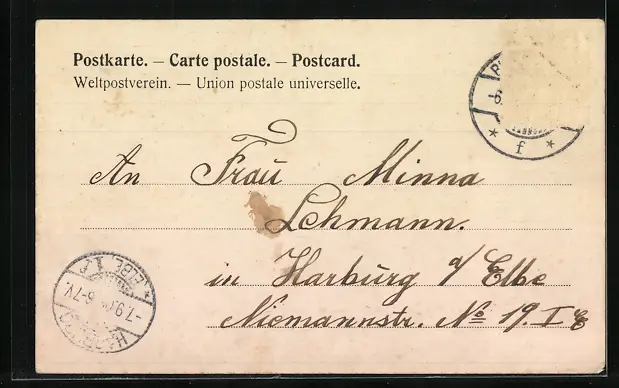 Postkarte. – Carte postale. – Postcard.
Weltpostverein. — Union postale universelle.
An Frau Minna
Lehmann.
in Harburg a/ Elbe
Niemannstr. No 19. I E
* f *
ELBE
-7.9. 6-7V.